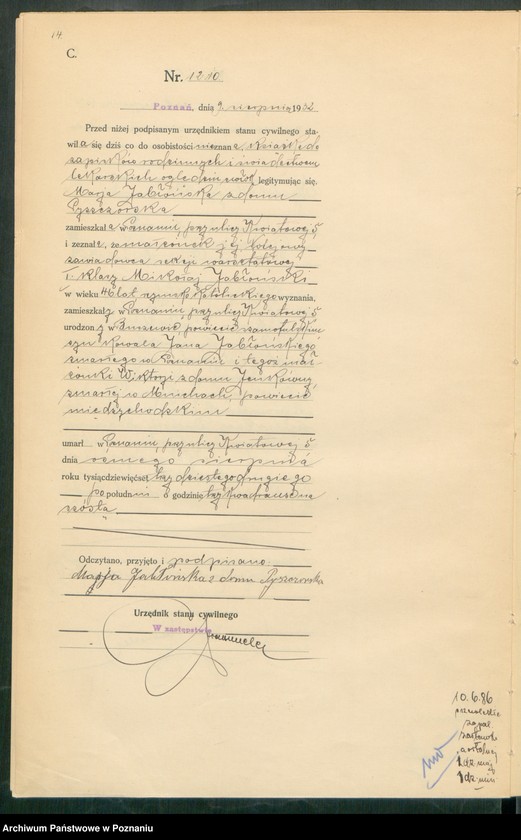 14.
C.
Nr. 1210
Poznań, dnia 9 sierpnia 1932
Przed niżej podpisanym urzędnikiem stanu cywilnego sta-
wiła się dziś co do osobistości nieznana, książeczką
zapisków rodzinnych i świadectwem
lekarskich oględzin zwłok legitymując się.
Marja Jabłońska z domu
Pyszczorska
zamieszkała w Poznaniu, przy ulicy Kwiatowej 5
i zeznała, że małżonek jej kolejowy
zawiadowca sekcji warsztatowej
I. klasy Mikołaj Jabłoński
w wieku 46 lat rzymsko katolickiego wyznania,
zamieszkały w Poznaniu, przy ulicy Kwiatowej 5
urodzony w powiecie szamotulskim
syn kowala Jana Jabłońskiego
zmarłego w Poznaniu i tegoż mał-
żonki Wiktorji z domu
zmarłej w Muchach, powiecie
międzychodzkim
umarł w Poznaniu, przy ulicy Kwiatowej 5
dnia ósmego sierpnia
roku tysiącdziewięćset trzydziestego drugiego
po południu o godzinie trzy kwadranse na
szóstą.
Odczytano, przyjęto i podpisano.
Marja Jabłońska z domu Pyszczorska
Urzędnik stanu cywilnego
W zastępstwie
10.6.86
Archiwum Państwowe w Poznaniu